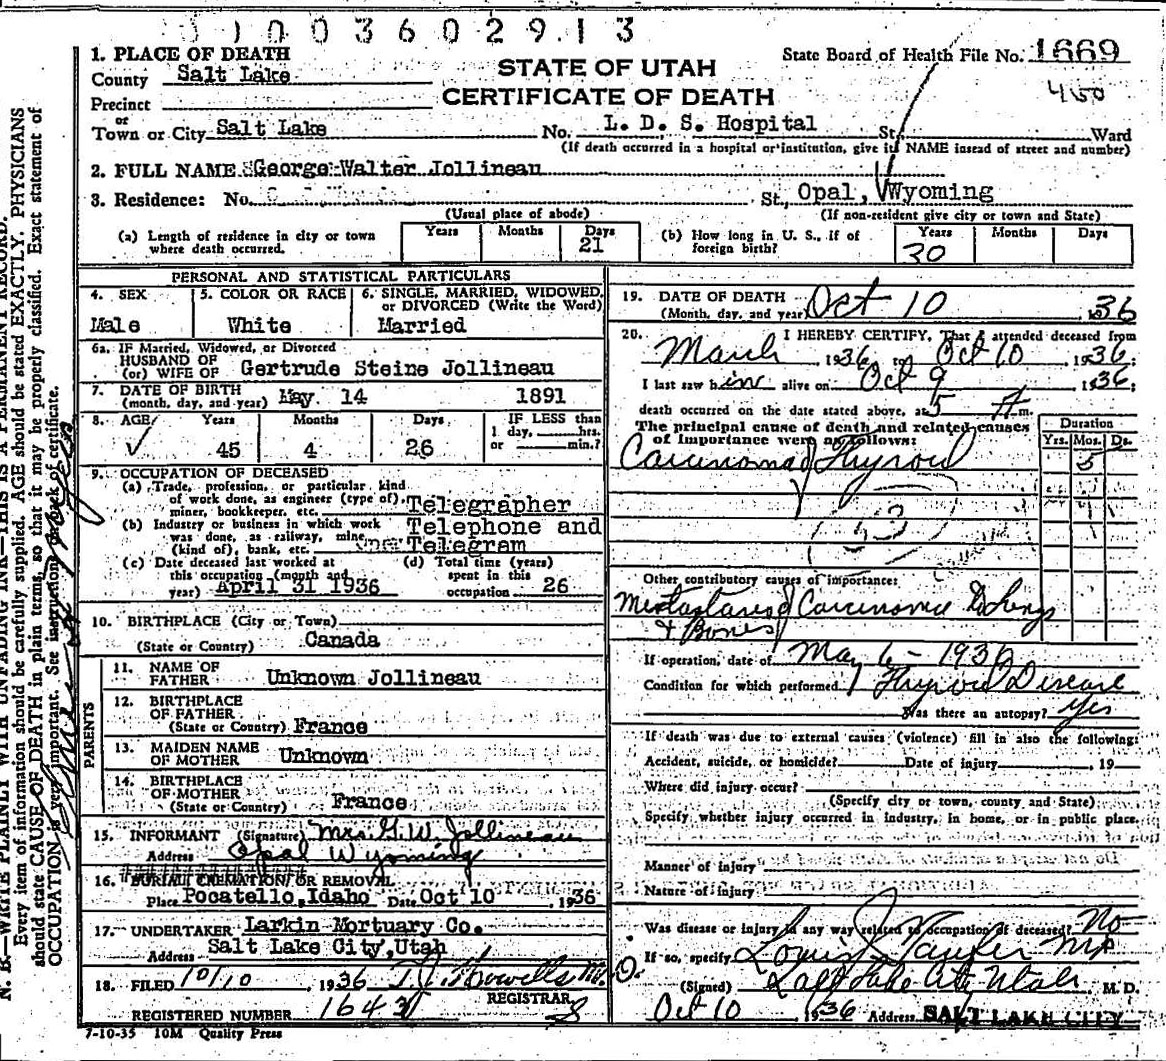 1003602913
1. PLACE OF DEATH
County Salt Lake
State Board of Health File No. 1669
STATE OF UTAH
CERTIFICATE OF DEATH
Precinct
or
Town or City Salt Lake No. L. D. S. Hospital St. Ward
(If death occurred in a hospital or institution, give its NAME insead of street and number)
2. FULL NAME George Walter Jollineau
3. Residence: No. St., Opal, Wyoming
(Usual place of abode) (If non-resident give city or town and State)
(a) Length of residence in city or town where death occurred. Years Months Days 21
(b) How long in U. S., if of foreign birth? Years 30 Months Days
PERSONAL AND STATISTICAL PARTICULARS
4. SEX 5. COLOR OR RACE 6. SINGLE, MARRIED, WIDOWED, or DIVORCED (Write the Word)
Male White Married
6a. IF Married, Widowed, or Divorced
HUSBAND OF
(or) WIFE OF Gertrude Steine Jollineau
7. DATE OF BIRTH
(month, day, and year) May 14 1891
8. AGE Years Months Days IF LESS than
1 day, hrs.
or min.?
45 4 26
9. OCCUPATION OF DECEASED
(a) Trade, profession, or particular kind
of work done, as engineer (type of),
miner, bookkeeper, etc. Telegrapher
(b) Industry or business in which work Telephone and
was done, as railway, mine
(kind of), bank, etc. Telegram
(c) Date deceased last worked at
this occupation (month and
year) April 31 1936
(d) Total time (years)
spent in this
occupation 26
10. BIRTHPLACE (City or Town)
(State or Country) Canada
PARENTS
11. NAME OF
FATHER Unknown Jollineau
12. BIRTHPLACE
OF FATHER
(State or Country) France
13. MAIDEN NAME
OF MOTHER Unknown
14. BIRTHPLACE
OF MOTHER
(State or Country) France
15. INFORMANT (Signature) Mrs. G. W. Jollineau
Address Opal Wyoming
16. BURIAL CREMATION OR REMOVAL
Place Pocatello, Idaho Date Oct 10, 1936
17. UNDERTAKER Larkin Mortuary Co.
Address Salt Lake City, Utah
18. FILED 10/10, 1936 T. J. Howells M.D.
REGISTRAR
REGISTERED NUMBER 1643
7-10-35 10M Quality Press
19. DATE OF DEATH
(Month, day, and year) Oct 10 1936
20. I HEREBY CERTIFY, That I attended deceased from
March 1936 to Oct 10 1936;
I last saw him alive on Oct 9 1936;
death occurred on the date stated above, at 5 A m.
The principal cause of death and related causes
of importance were as follows:
Duration
Yrs. Mos. Ds.
Carcinoma of Thyroid 5
Other contributory causes of importance:
Metastases of Carcinoma to Lungs
& Bones
If operation, date of May 6 - 1936
Condition for which performed Thyroid Disease
Was there an autopsy? Yes
If death was due to external causes (violence) fill in also the following:
Accident, suicide, or homicide? Date of injury , 19
Where did injury occur?
(Specify city or town, county and State)
Specify whether injury occurred in industry, in home, or in public place,
Manner of injury
Nature of injury
Was disease or injury in any way related to occupation of deceased? No
If so, specify
(Signed) M. D.
Salt Lake City Utah
Oct 10 1936 Address SALT LAKE CITY
N. B.—WRITE PLAINLY WITH UNFADING INK—THIS IS A PERMANENT RECORD.
Every item of information should be carefully supplied. AGE should be stated EXACTLY. PHYSICIANS
should state CAUSE OF DEATH in plain terms, so that it may be properly classified. Exact statement of
OCCUPATION is very important. See instructions on back of certificate.